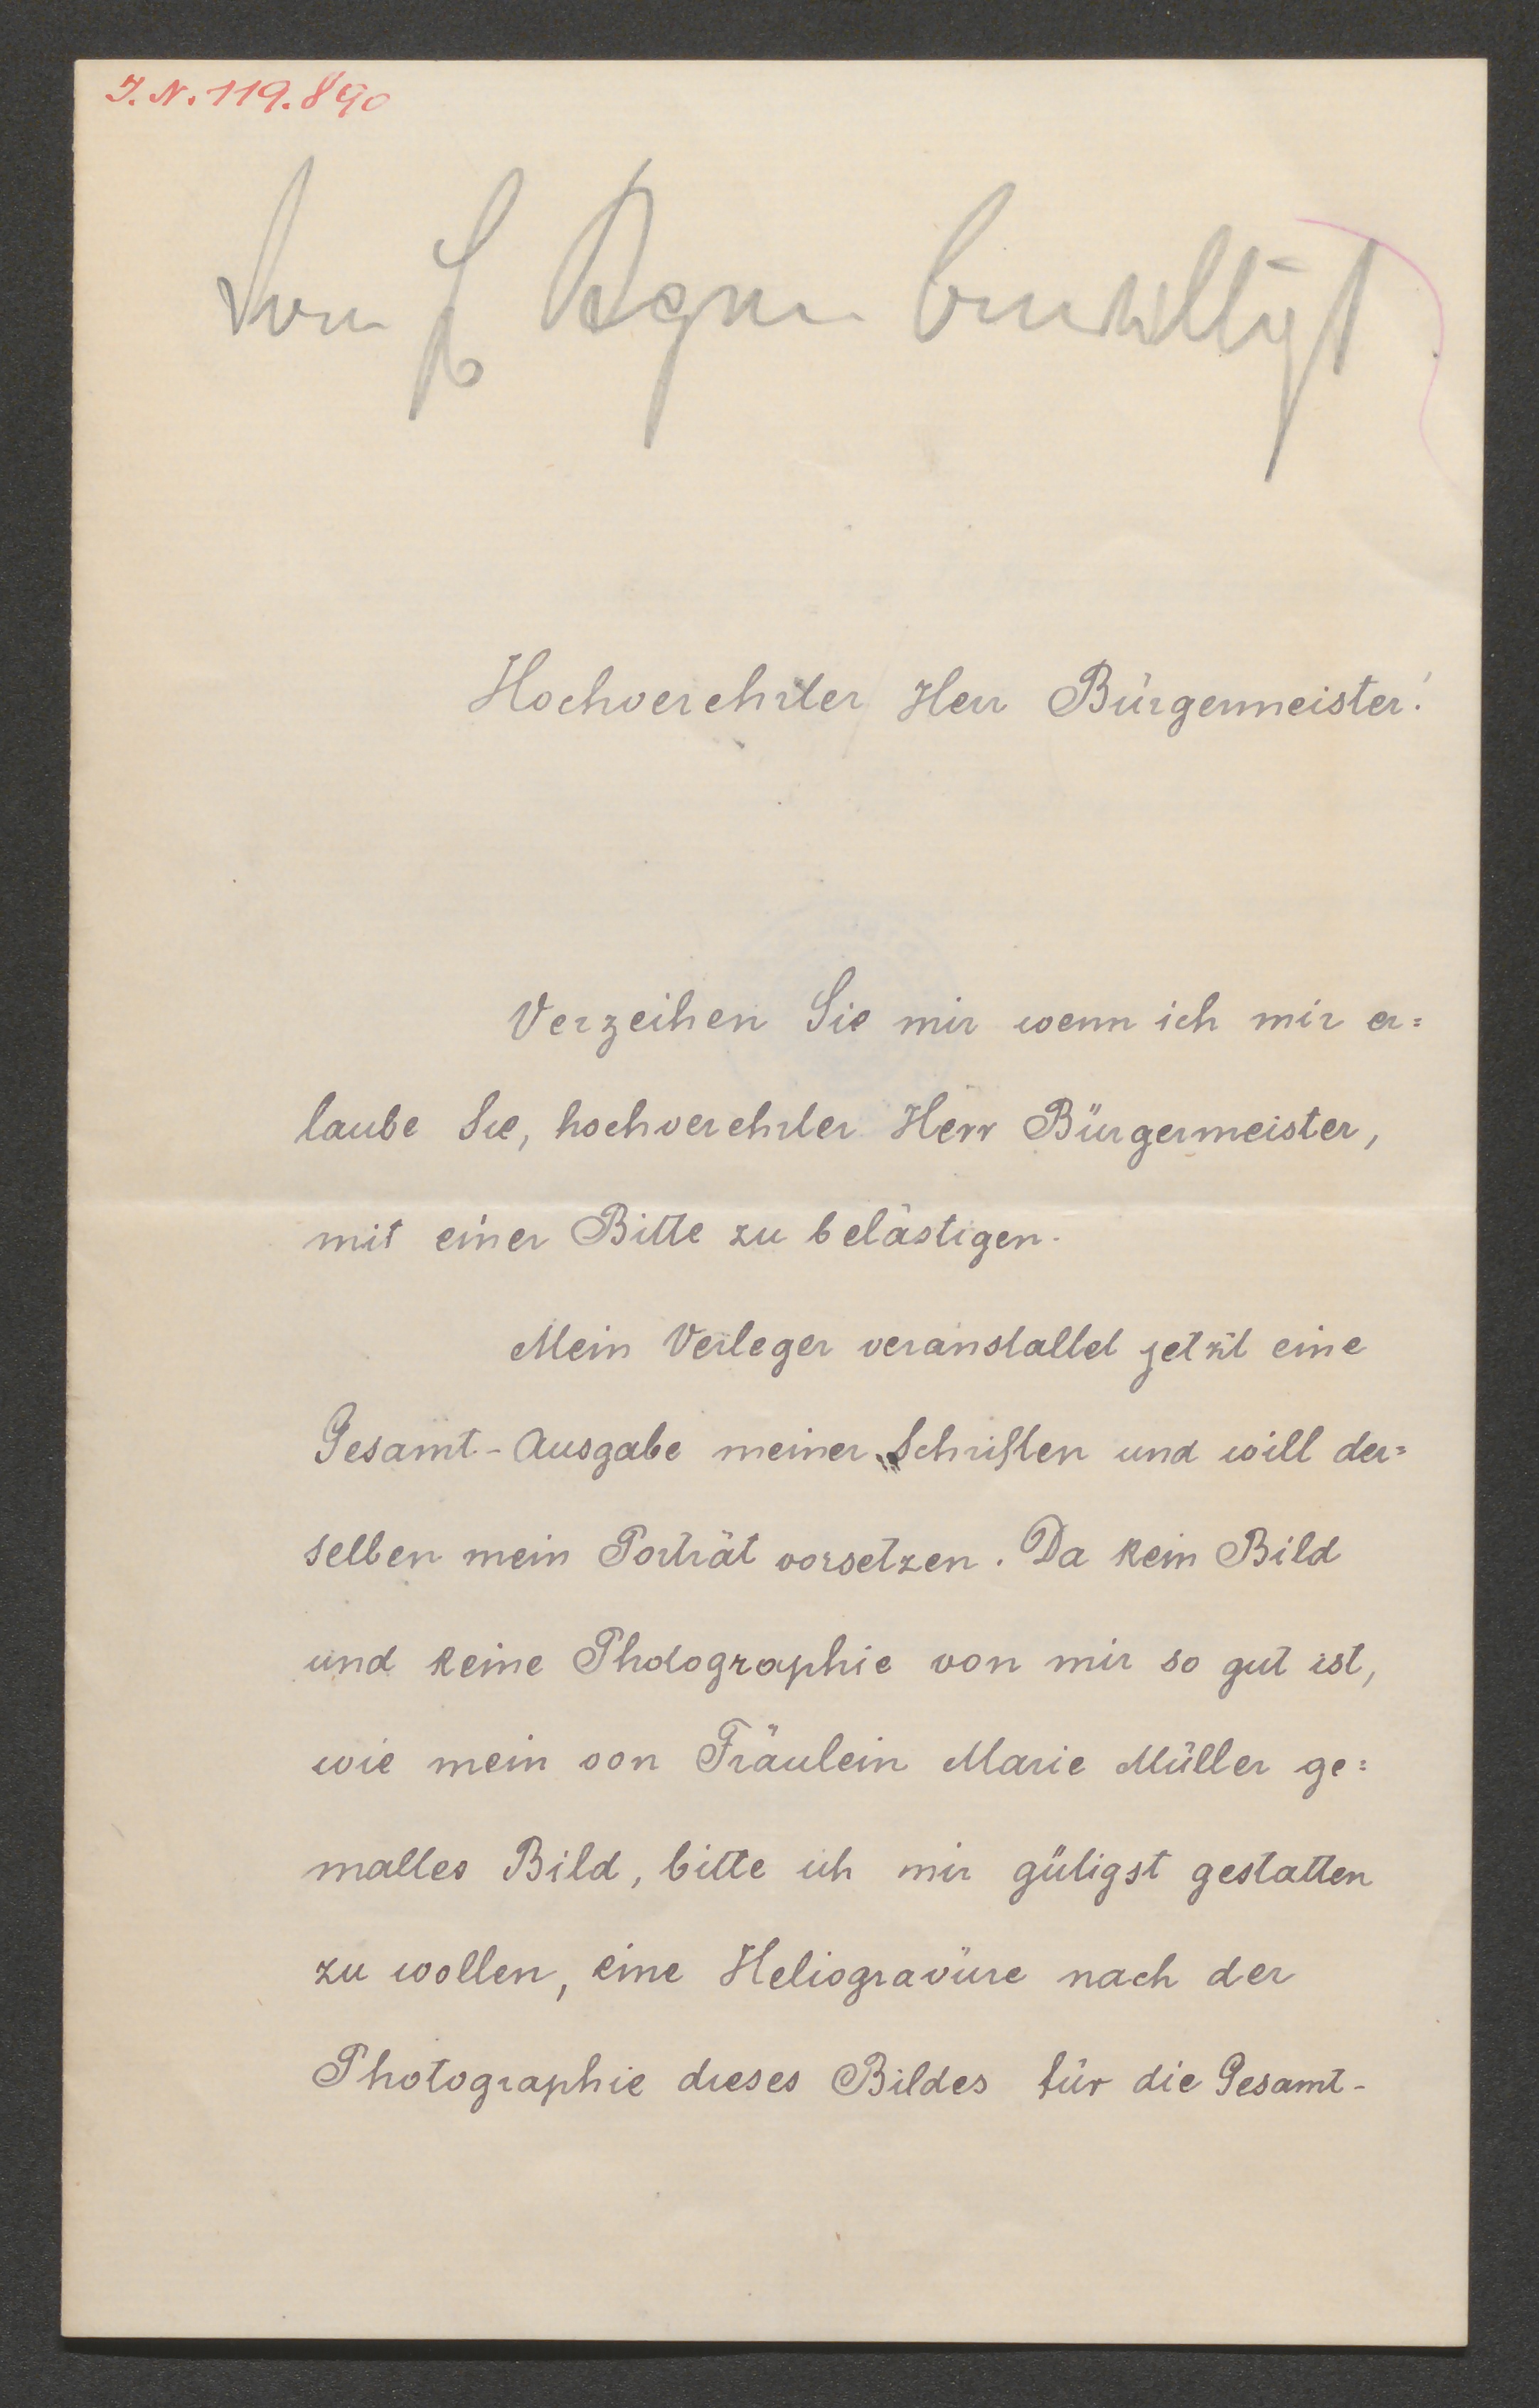 I. N. 119.890
Vom H bewilligt
Hochverehrter Herr Bürgermeister!
Verzeihen Sie mir wenn ich mir er=
laube Sie, hochverehrter Herr Bürgermeister,
mit einer Bitte zu belästigen.
Mein Verleger veranstaltet jetzt eine
Gesamt-Ausgabe meiner Schriften und will der=
selben mein Porträt vorsetzen. Da kein Bild
und keine Photographie von mir so gut ist,
wie mein von Fräulein Marie Müller ge=
maltes Bild, bitte ich mir gütigst gestatten
zu wollen, eine Heliogravüre nach der
Photographie dieses Bildes für die Gesamt-